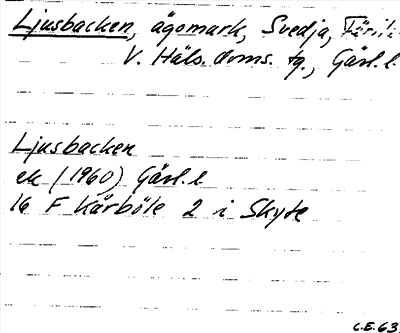 Ljusbacken, ägomark, Svedja, Färila
V. Häls. doms. tg., Gävl. l.
Ljusbacken
ek (1960) Gävl. l
16 F Kårböle 2 i Skyte
C.E. 63